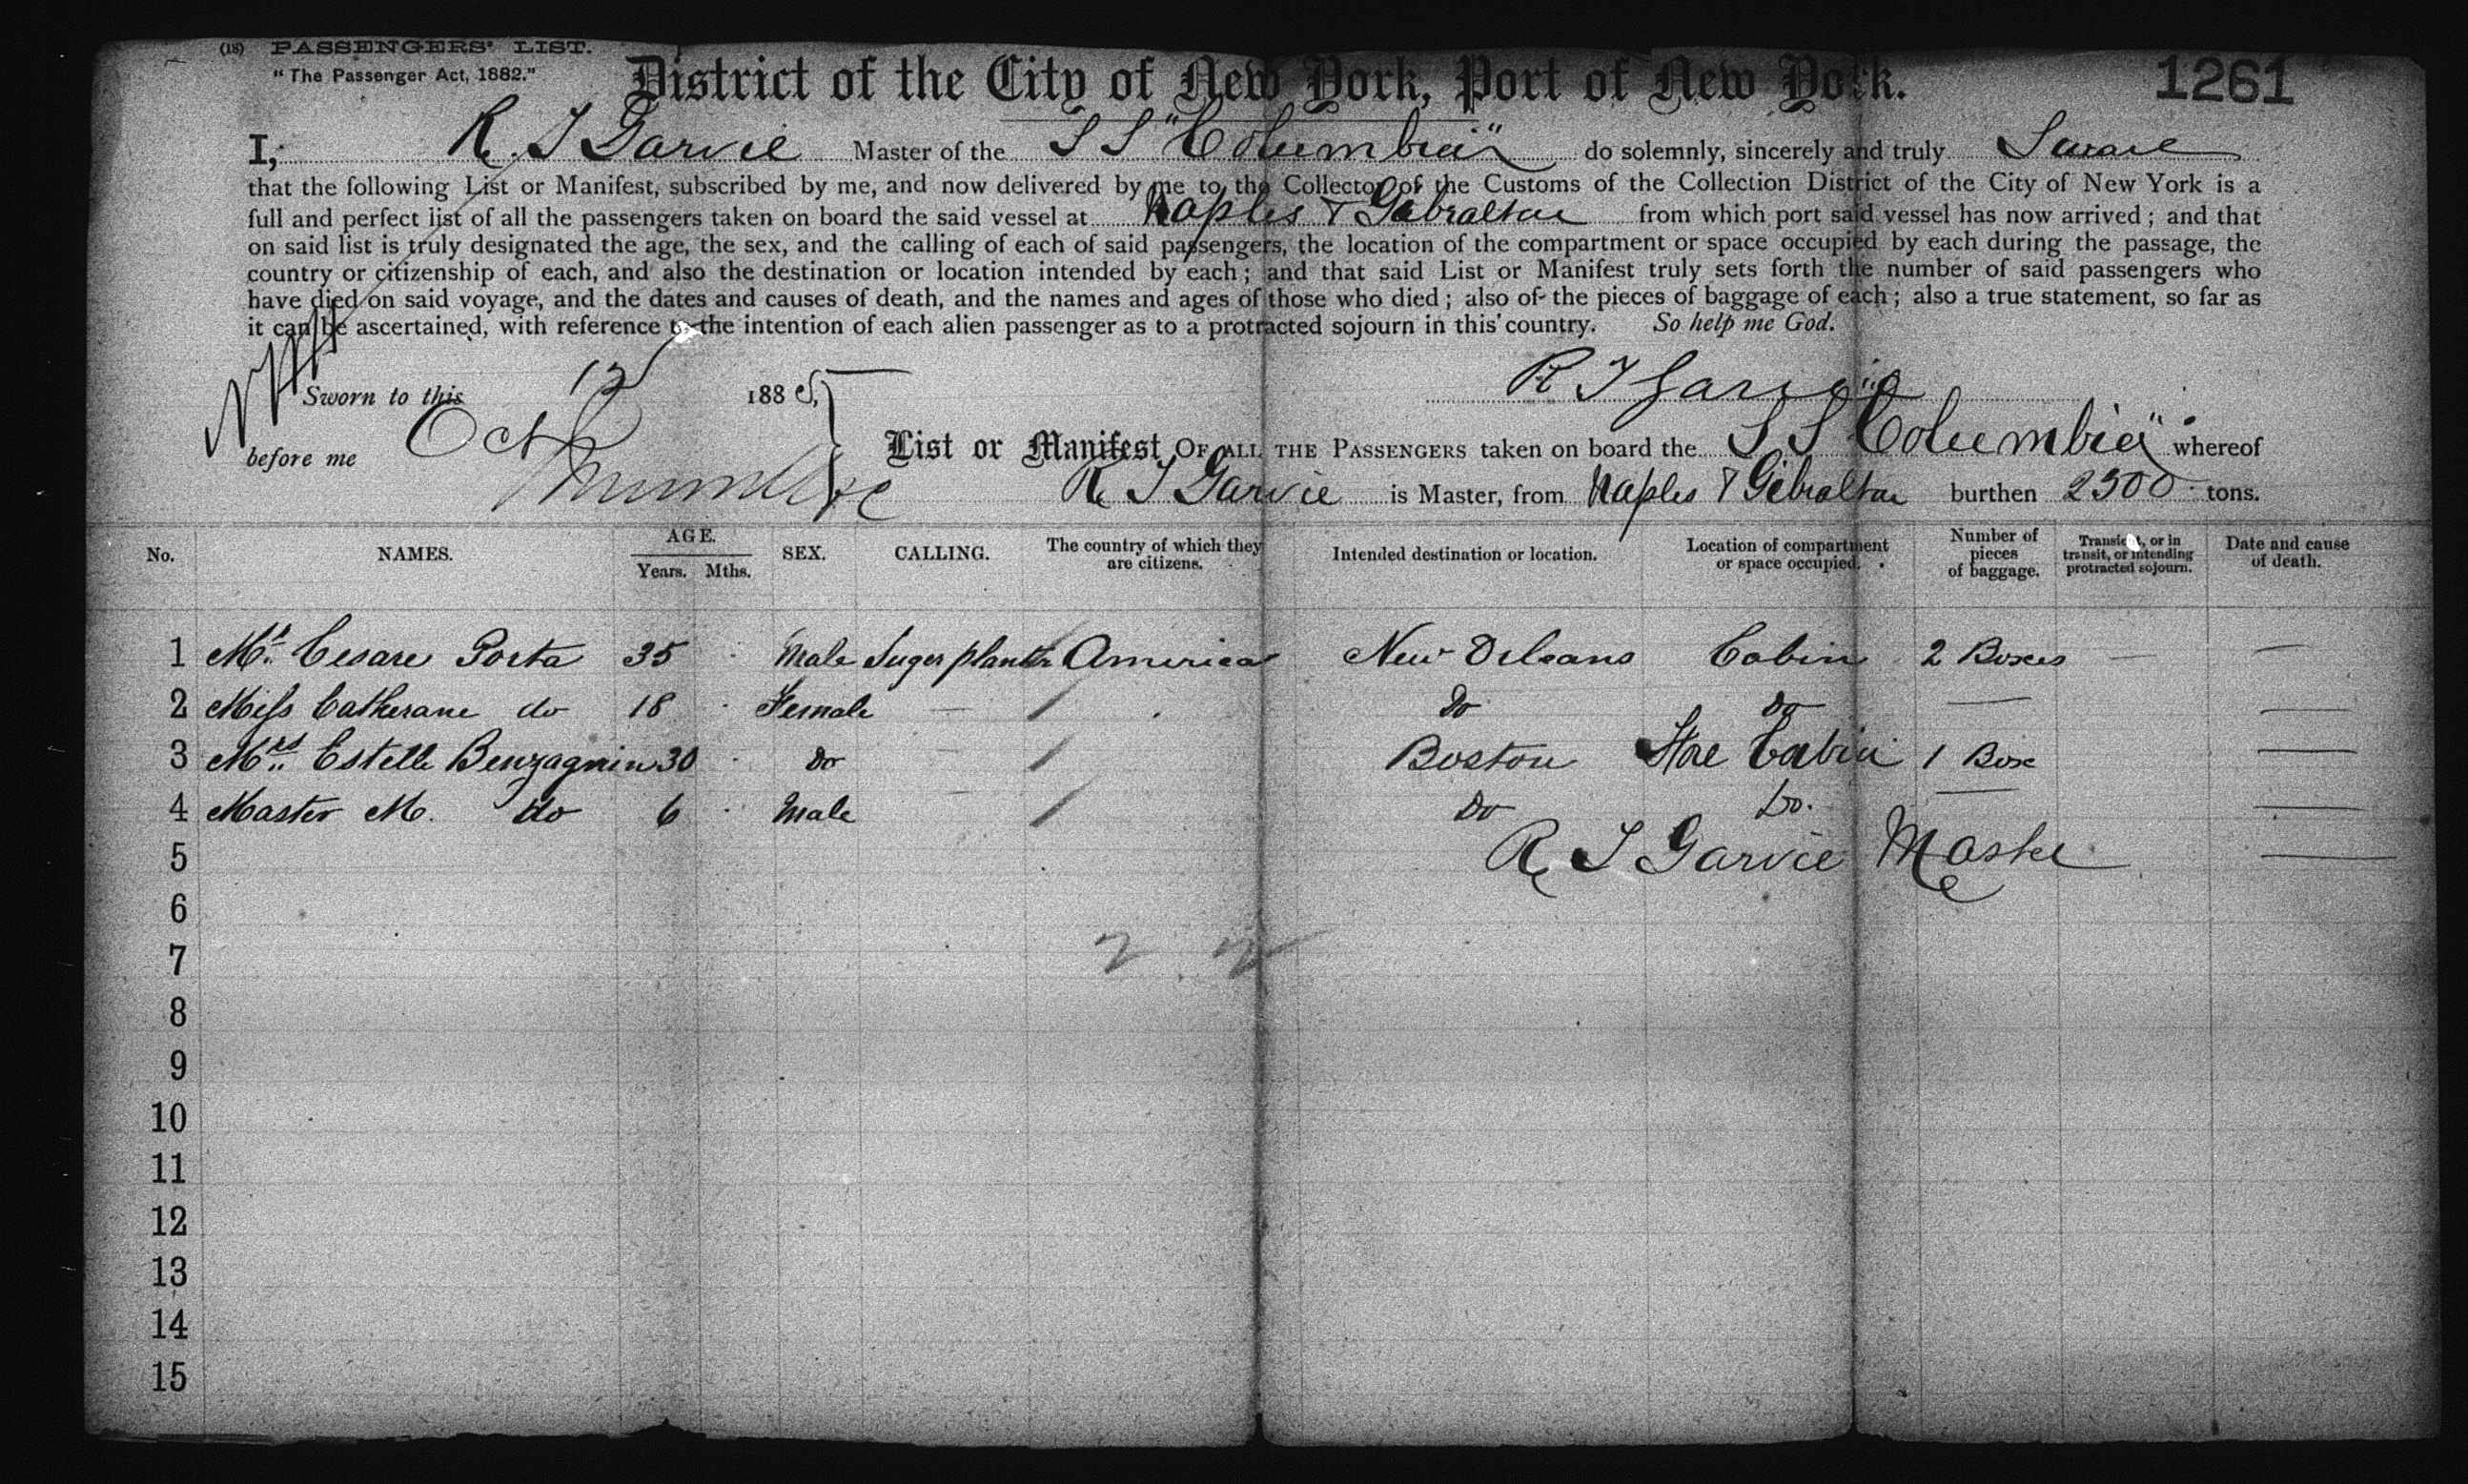 (18) PASSENGERS' LIST.
"The Passenger Act, 1882."
District of the City of New York, Port of New York.
1261
I, R. T Garvie Master of the S S "Columbia" do solemnly, sincerely and truly Sware
that the following List or Manifest, subscribed by me, and now delivered by me to the Collector of the Customs of the Collection District of the City of New York is a
full and perfect list of all the passengers taken on board the said vessel at Naples & Gibraltar from which port said vessel has now arrived; and that
on said list is truly designated the age, the sex, and the calling of each of said passengers, the location of the compartment or space occupied by each during the passage, the
country or citizenship of each, and also the destination or location intended by each; and that said List or Manifest truly sets forth the number of said passengers who
have died on said voyage, and the dates and causes of death, and the names and ages of those who died; also of the pieces of baggage of each; also a true statement, so far as
it can be ascertained, with reference to the intention of each alien passenger as to a protracted sojourn in this country. So help me God.
Sworn to this 12 1885,
R T Garvie
before me Oct
List or Manifest OF ALL THE PASSENGERS taken on board the S S "Columbia" whereof
R T Garvie is Master, from Naples & Gibraltar burthen 2300 tons.
No. NAMES. AGE. Years. Mths. SEX. CALLING. The country of which they are citizens. Intended destination or location. Location of compartment or space occupied. Number of pieces of baggage. Transient, or in transit, or intending protracted sojourn. Date and cause of death.
1 Mr. Cesare Porta 35 Male Suger planter America New Orleans Cabin 2 Boxes — —
2 Miss Catherane do 18 Female — Do Do — —
3 Mrs. Estelle Benzagnin 30 Do — Boston Cabin 1 Box —
4 Master M. do 6 Male — Do Do. — —
5 R T Garvie Master —
6
7
8
9
10
11
12
13
14
15